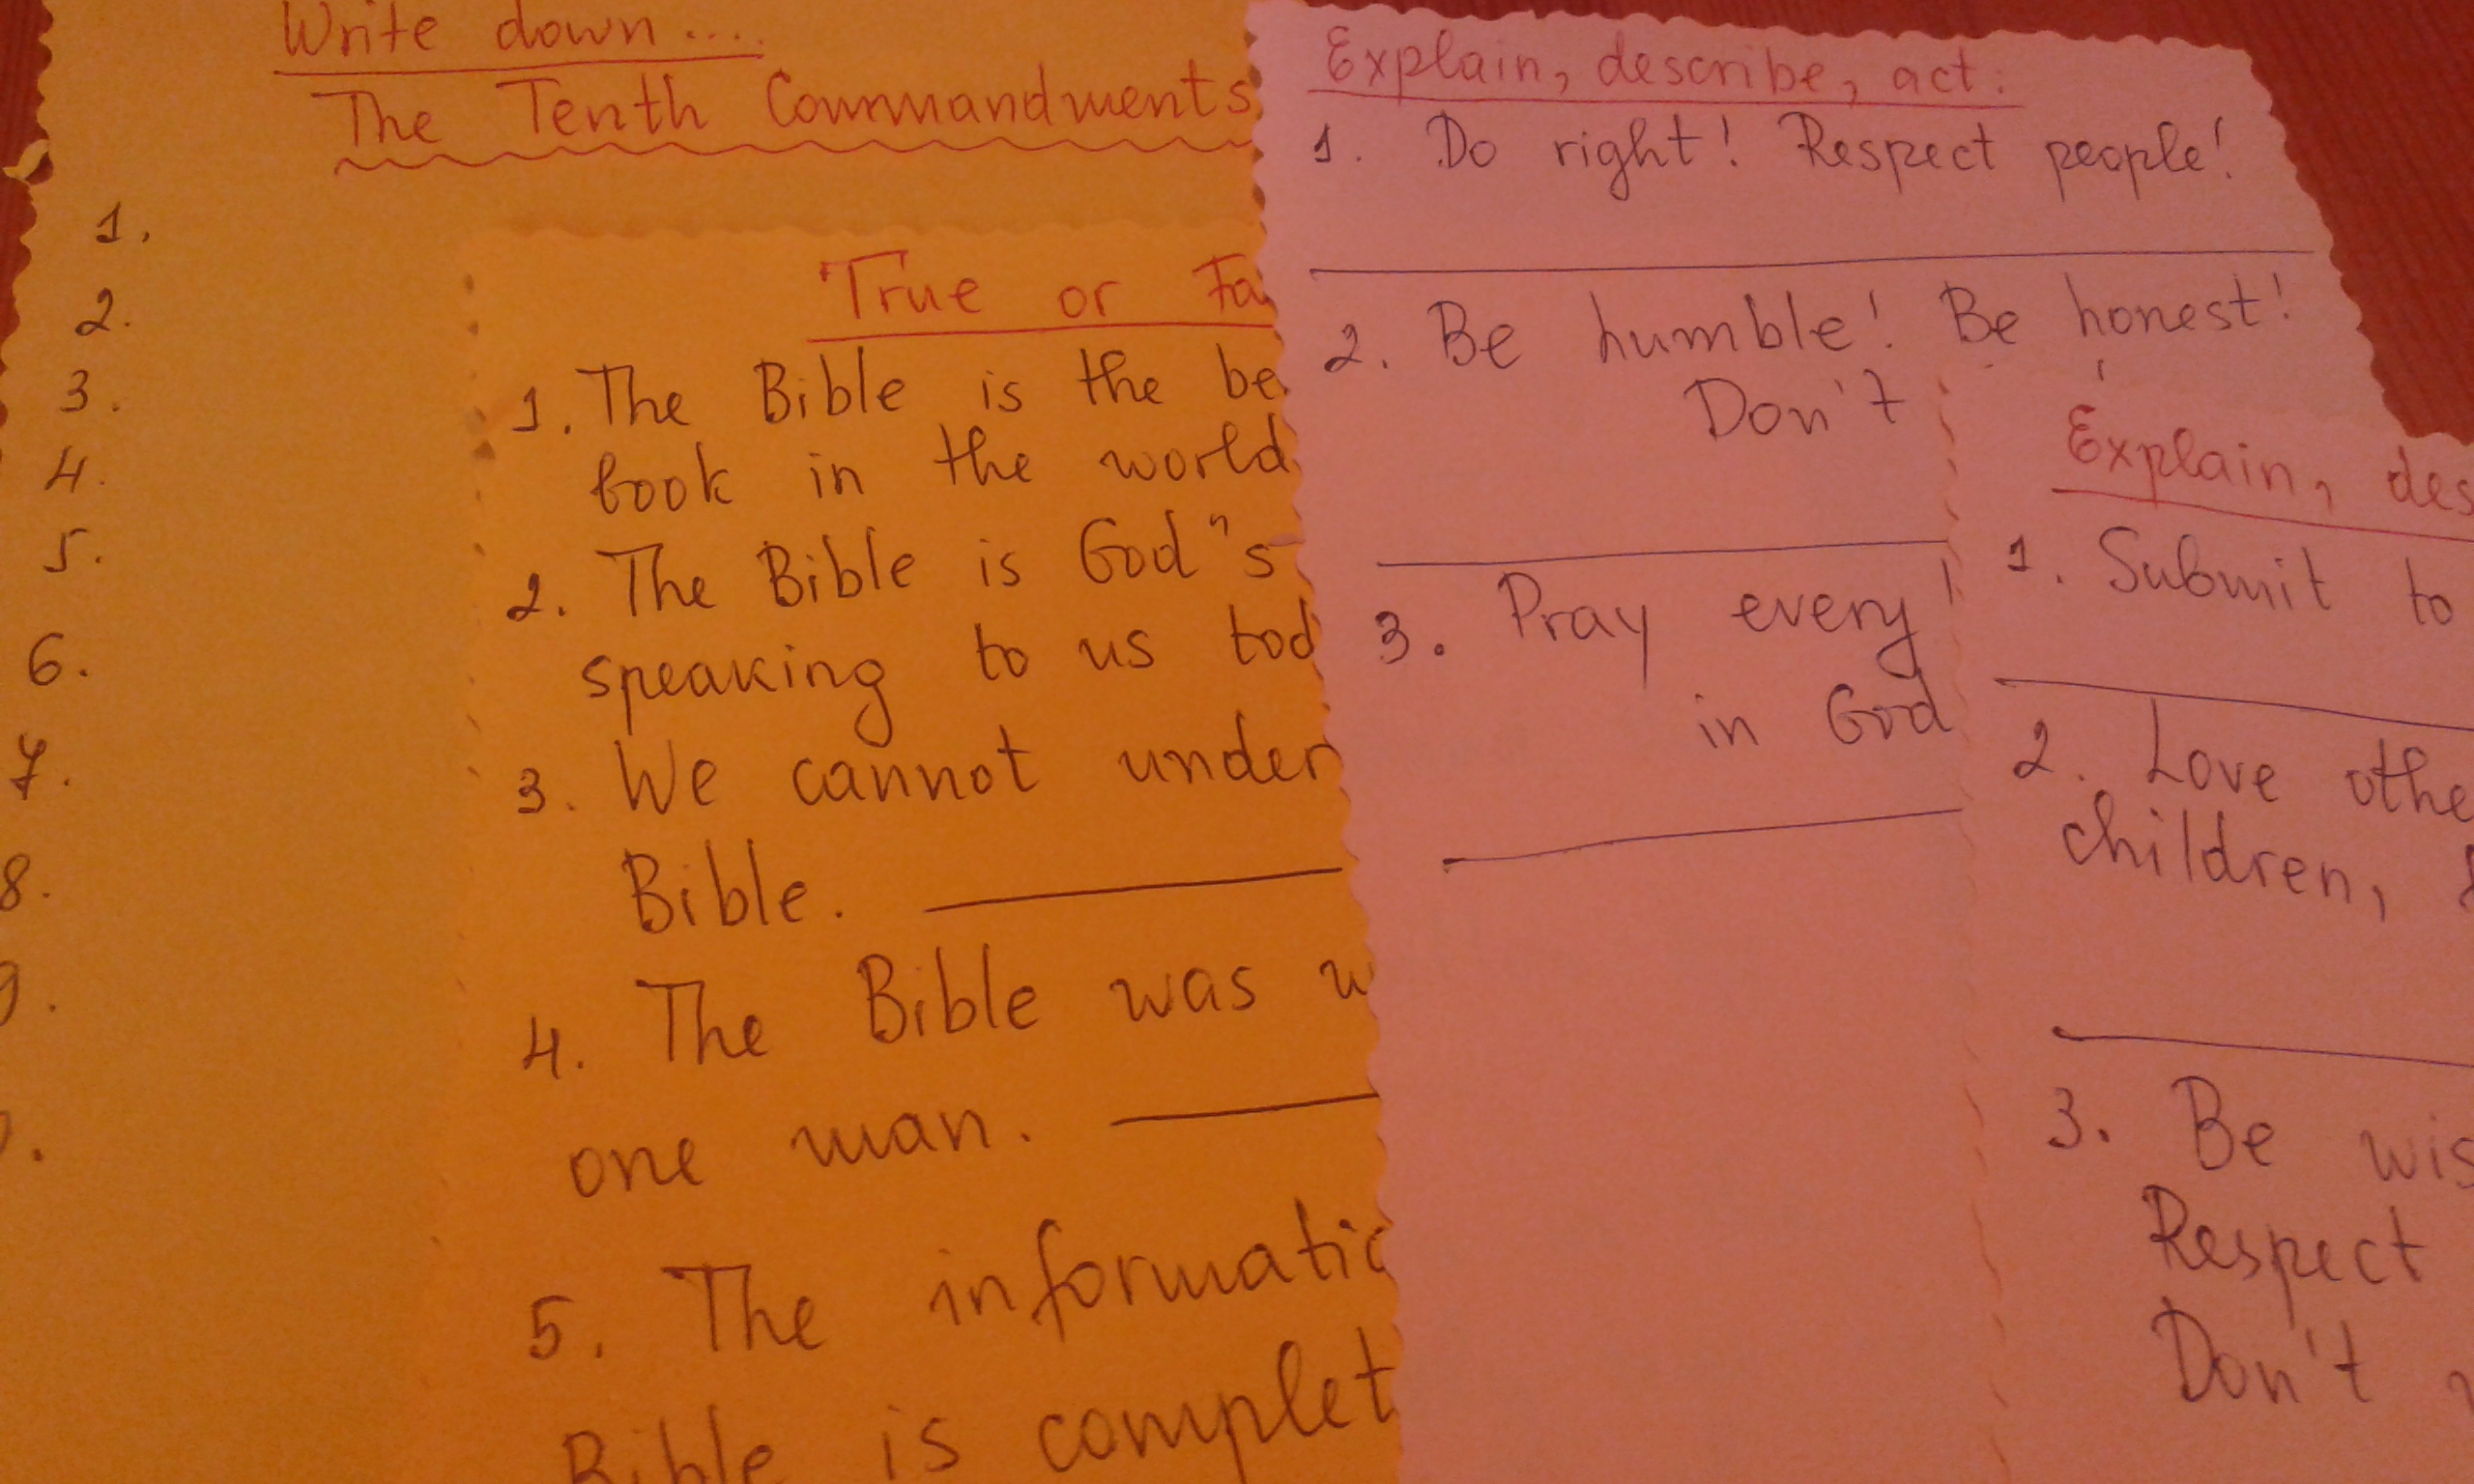 Write down....
The Tenth Commandments
1.
2.
3.
4.
5.
6.
7.
8.
True or Fa
1. The Bible is the be
book in the world
2. The Bible is God"s
speaking to us tod
3. We cannot under
Bible.
4. The Bible was w
one man.
5. The informatio
Bible is complet
Explain, describe, act:
1. Do right! Respect people!
2. Be humble! Be honest!
Don't
3. Pray every
in God
Explain, des
1. Submit to
2. Love othe
children,
3. Be wis
Respect
Don't